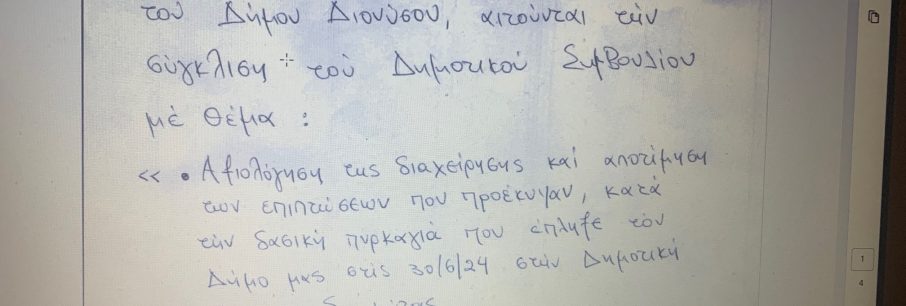 τοῦ Δήμου Διονύσου, αιτούνται τὴν
σύγκλιση τοῦ Δημοτικού Συμβουλίου
μὲ θέμα :
<< • Αξιολόγηση της διαχείρησης καὶ αποτίμηση
των επιπτώσεων που προέκυψαν, κατά
τὴν δασική πυρκαγιὰ που έπληξε τὸν
Δήμο μας στὶς 30/6/24 στὴν Δημοτική
1
4